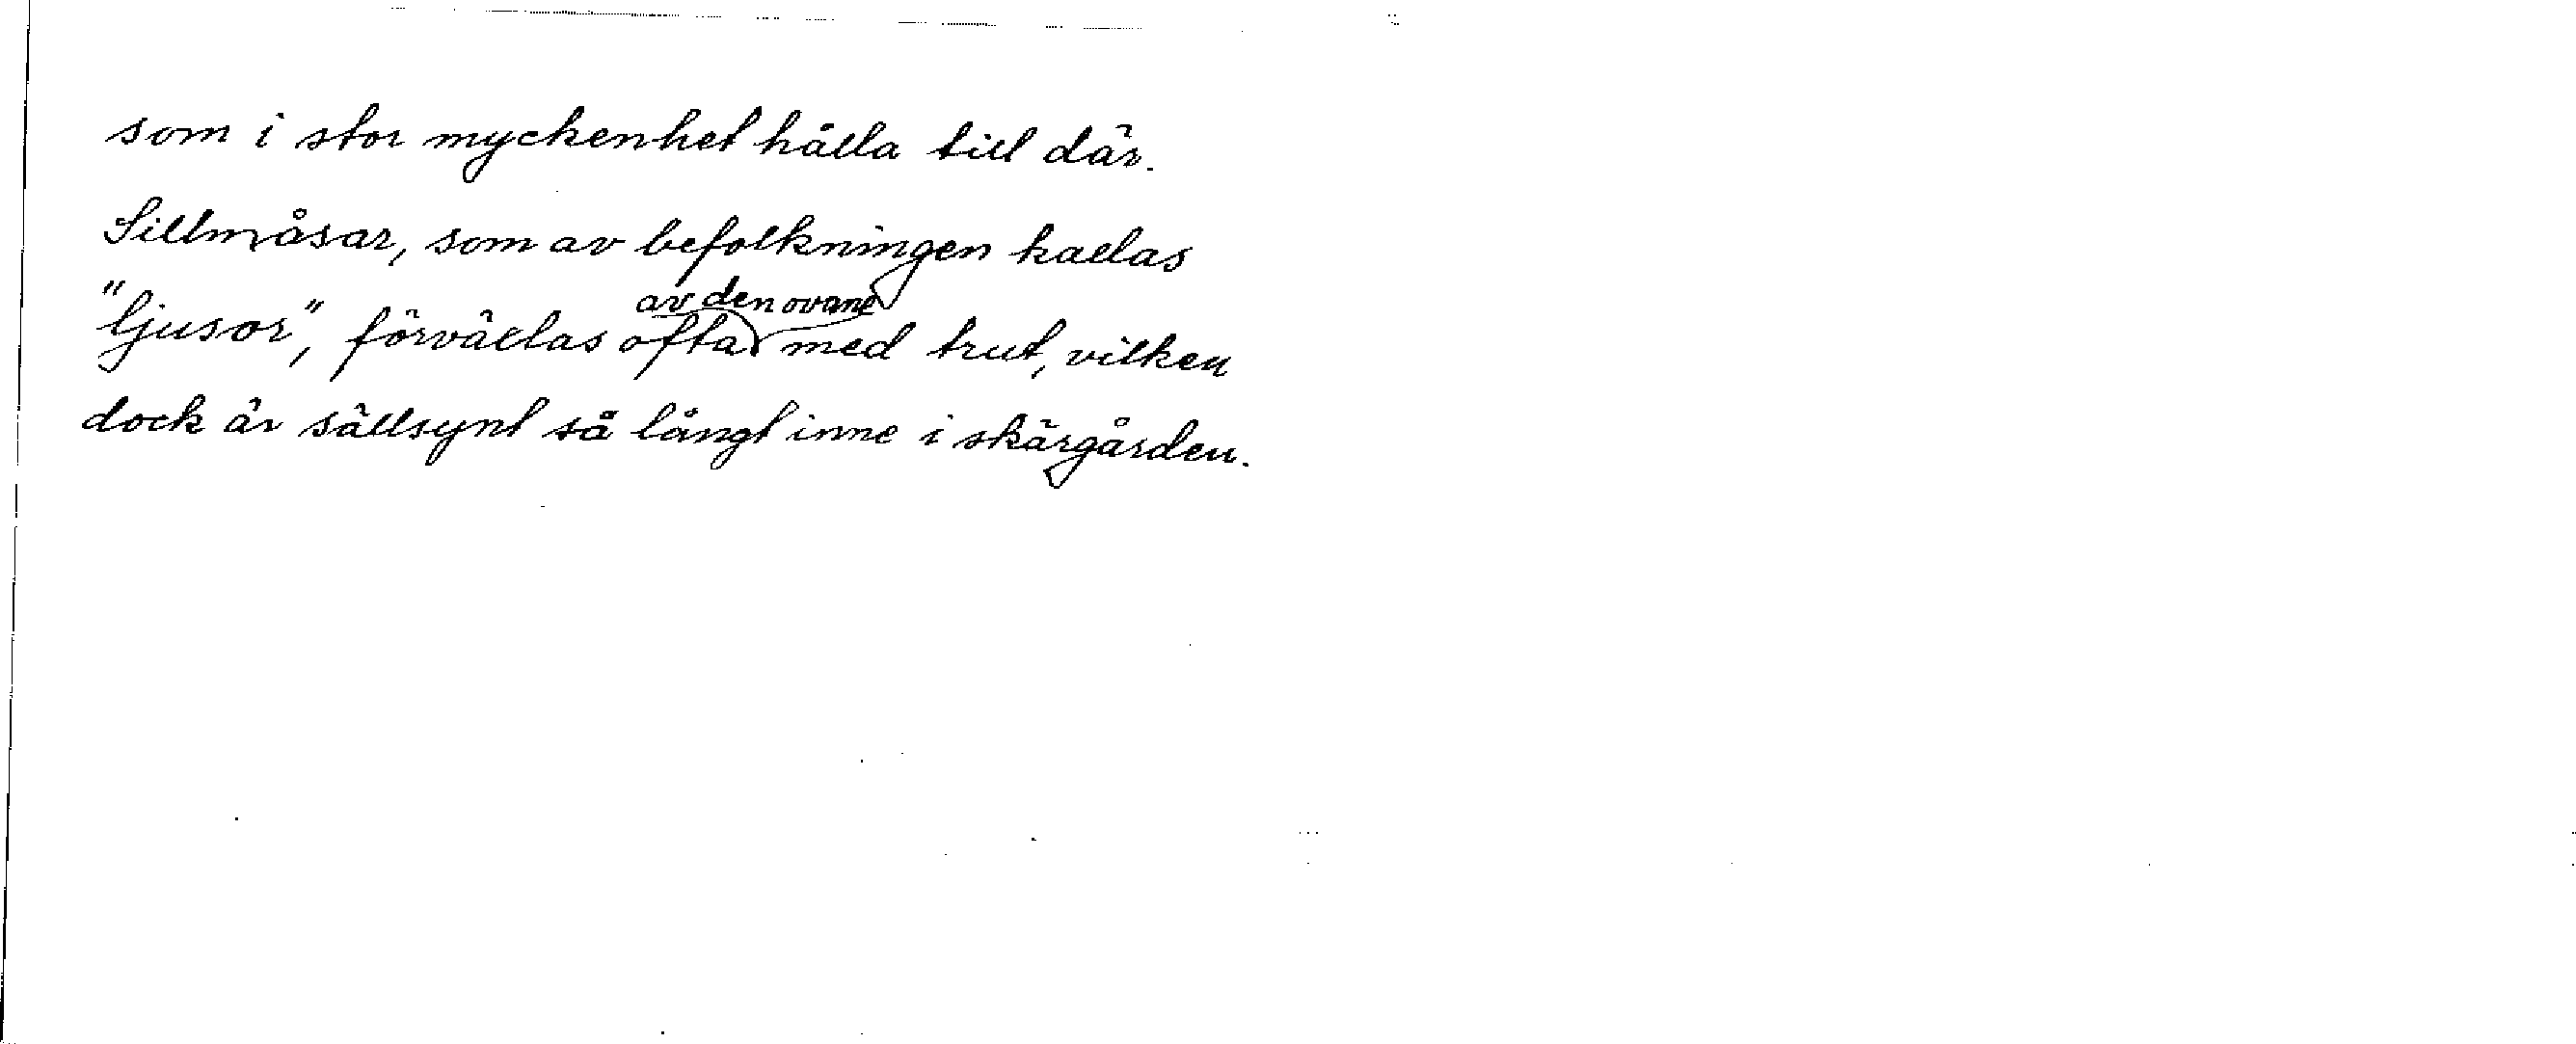 som i stor myckenhet hålla till där.
Sillmåsar, som av befolkningen kallas
av den ovane
"ljusor", förväxlas ofta med trut, vilken
dock är sällsynt så långt inne i skärgården.